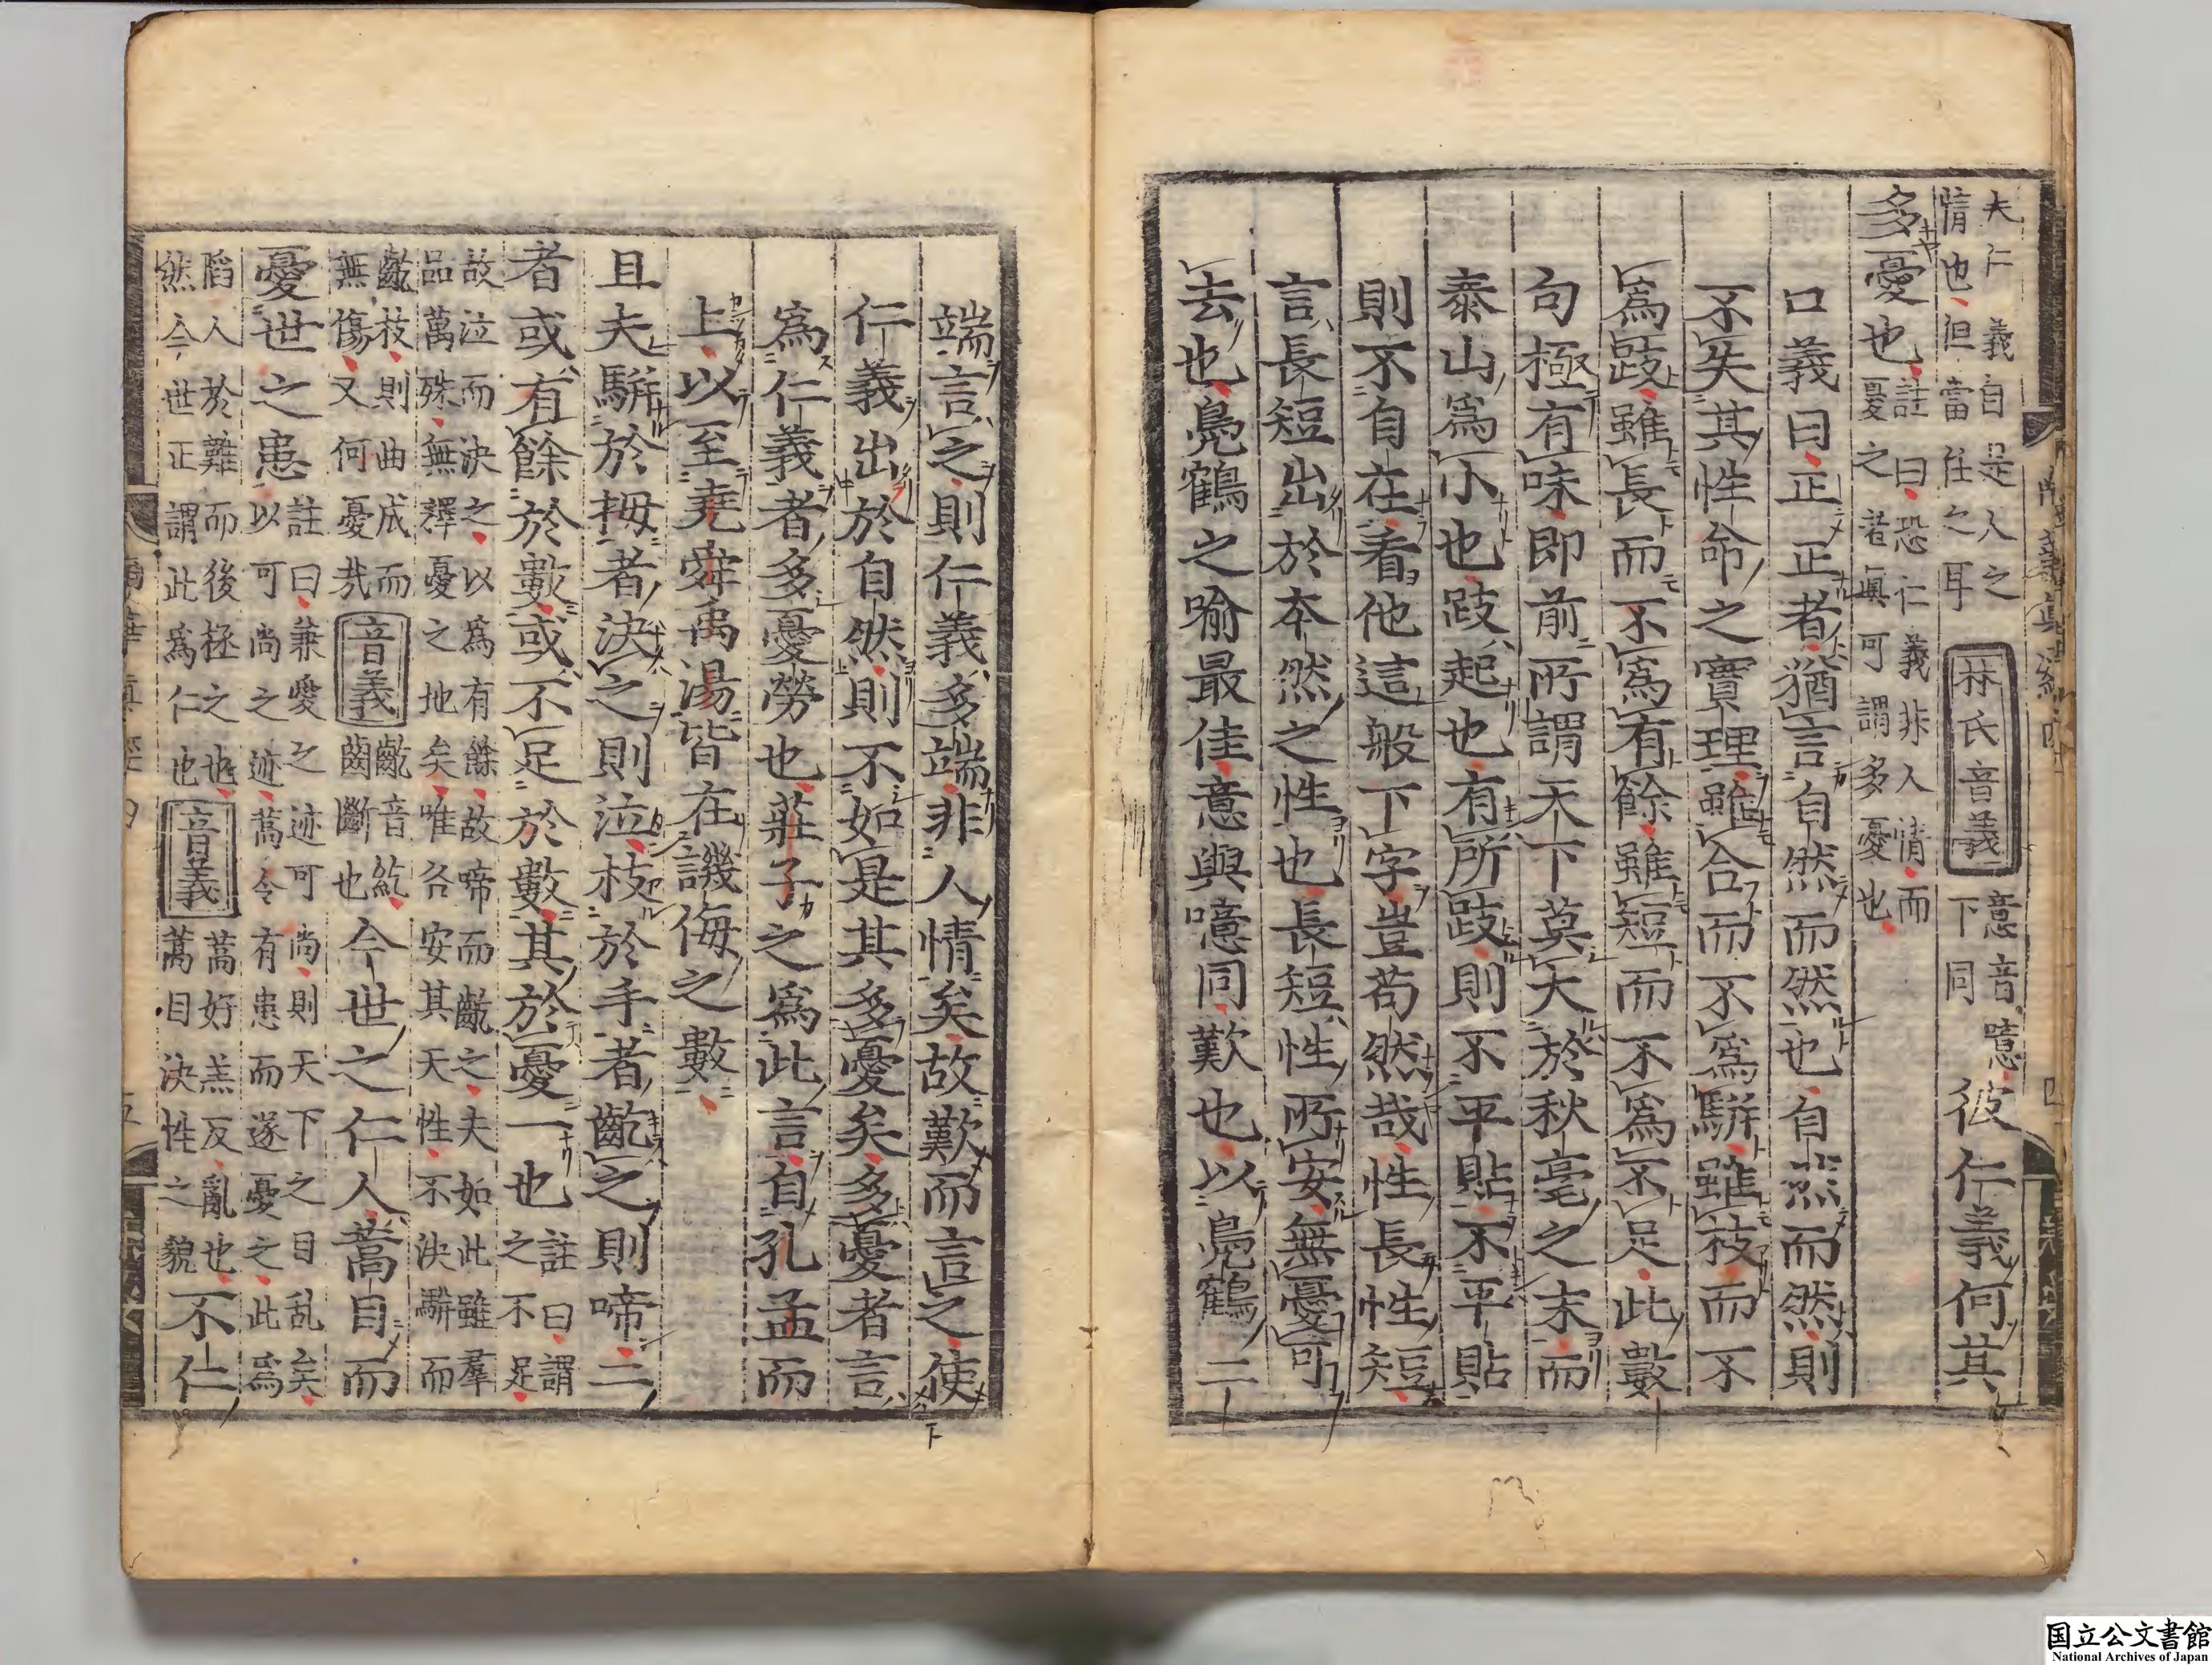 夫仁義自是人之
情也但當任之耳
林氏音義
意音噫
下同
彼仁義何其
多憂也
註曰恐仁義非人情而
憂之者眞可謂多憂也
口義曰正正者猶言自然而然也自然而然則
不失其性命之實理雖合而不爲騈雖枝而不
爲跂雖長而不爲有餘雖短而不爲不足此數
句極有味即前所謂天下莫大於秋毫之末而
泰山爲小也跂起也有所跂則不平貼不平貼
則不自在着他這般下字豈苟然哉性長性短
言長短出於本然之性也長短性所安無憂可
去也鳧鶴之喻最佳意與噫同歎也以鳧鶴二
端言之則仁義多端非人情矣故歎而言之使
仁義出於自然則不如是其多憂矣多憂者言
爲仁義者多憂勞也莊子之爲此言自孔孟而
上以至堯舜禹湯皆在譏侮之數
且夫騈於拇者決之則泣枝於手者齕之則啼二
者或有餘於數或不足於數其於憂一也
註曰謂
之不足
故泣而決之以爲有餘故啼而齕之夫如此雖羣
品萬殊無釋憂之地矣唯各安其天性不決騈而
齕枝則曲成而
無傷又何憂哉
音義
齕音紇
齒斷也
今世之仁人蒿目而
憂世之患
註曰兼愛之迹可尚則天下之目乱矣
以可尚之迹蒿令有患而遂憂之此爲
陷人於難而後拯之也
然今世正謂此爲仁也
音義
蒿好羔反亂也
蒿目決性之貌
不仁
国立公文書館
National Archives of Japan